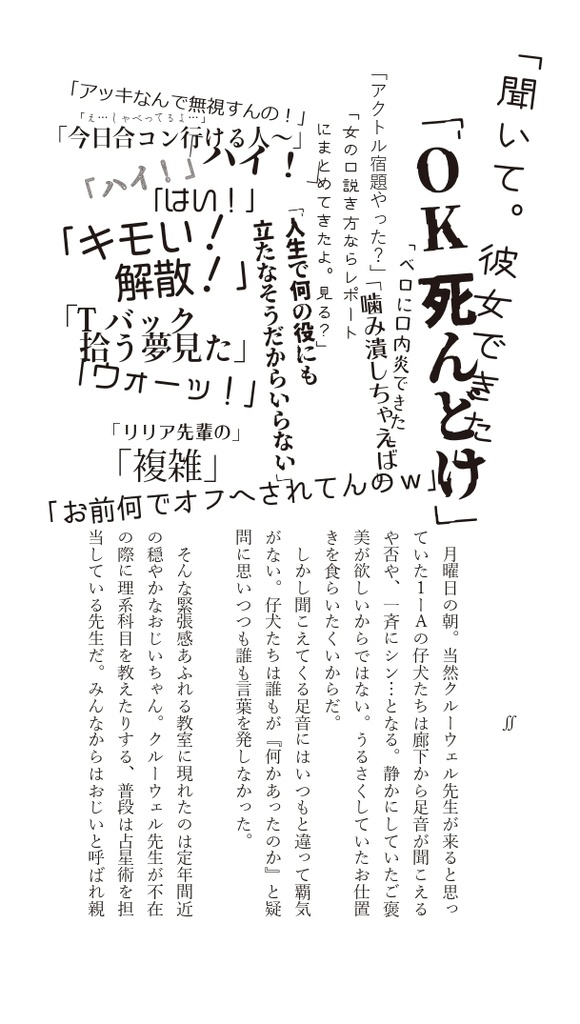 「聞いて。彼女できた」
「OK 死んどけ」
「ベロに口内炎できた」
「噛み潰しちゃえばの」
「アクトル宿題やった?」
「女の口説き方ならレポート
にまとめてきたよ。見る?」
「人生で何の役にも
立たなそうだからいらない」
「アッキなんで無視すんの!」
「え…しゃべってるよ…」
「今日合コン行ける人〜」
「ハイ!」
「ハイ!」
「はい!」
「キモい!
解散!」
「Tバック
拾う夢見た」
「ウォーッ!」
「リリア先輩の」
「複雑」
「お前何でオフヘされてんのw」
∬
月曜日の朝。当然クルーウェル先生が来ると思っ
ていた1―Aの仔犬たちは廊下から足音が聞こえる
や否や、一斉にシン…となる。静かにしていたご褒
美が欲しいからではない。うるさくしていたお仕置
きを食らいたくいからだ。
しかし聞こえてくる足音にはいつもと違って覇気
がない。仔犬たちは誰もが『何かあったのか』と疑
問に思いつつも誰も言葉を発しなかった。
そんな緊張感あふれる教室に現れたのは定年間近
の穏やかなおじいちゃん。クルーウェル先生が不在
の際に理系科目を教えたりする、普段は占星術を担
当している先生だ。みんなからはおじいと呼ばれ親